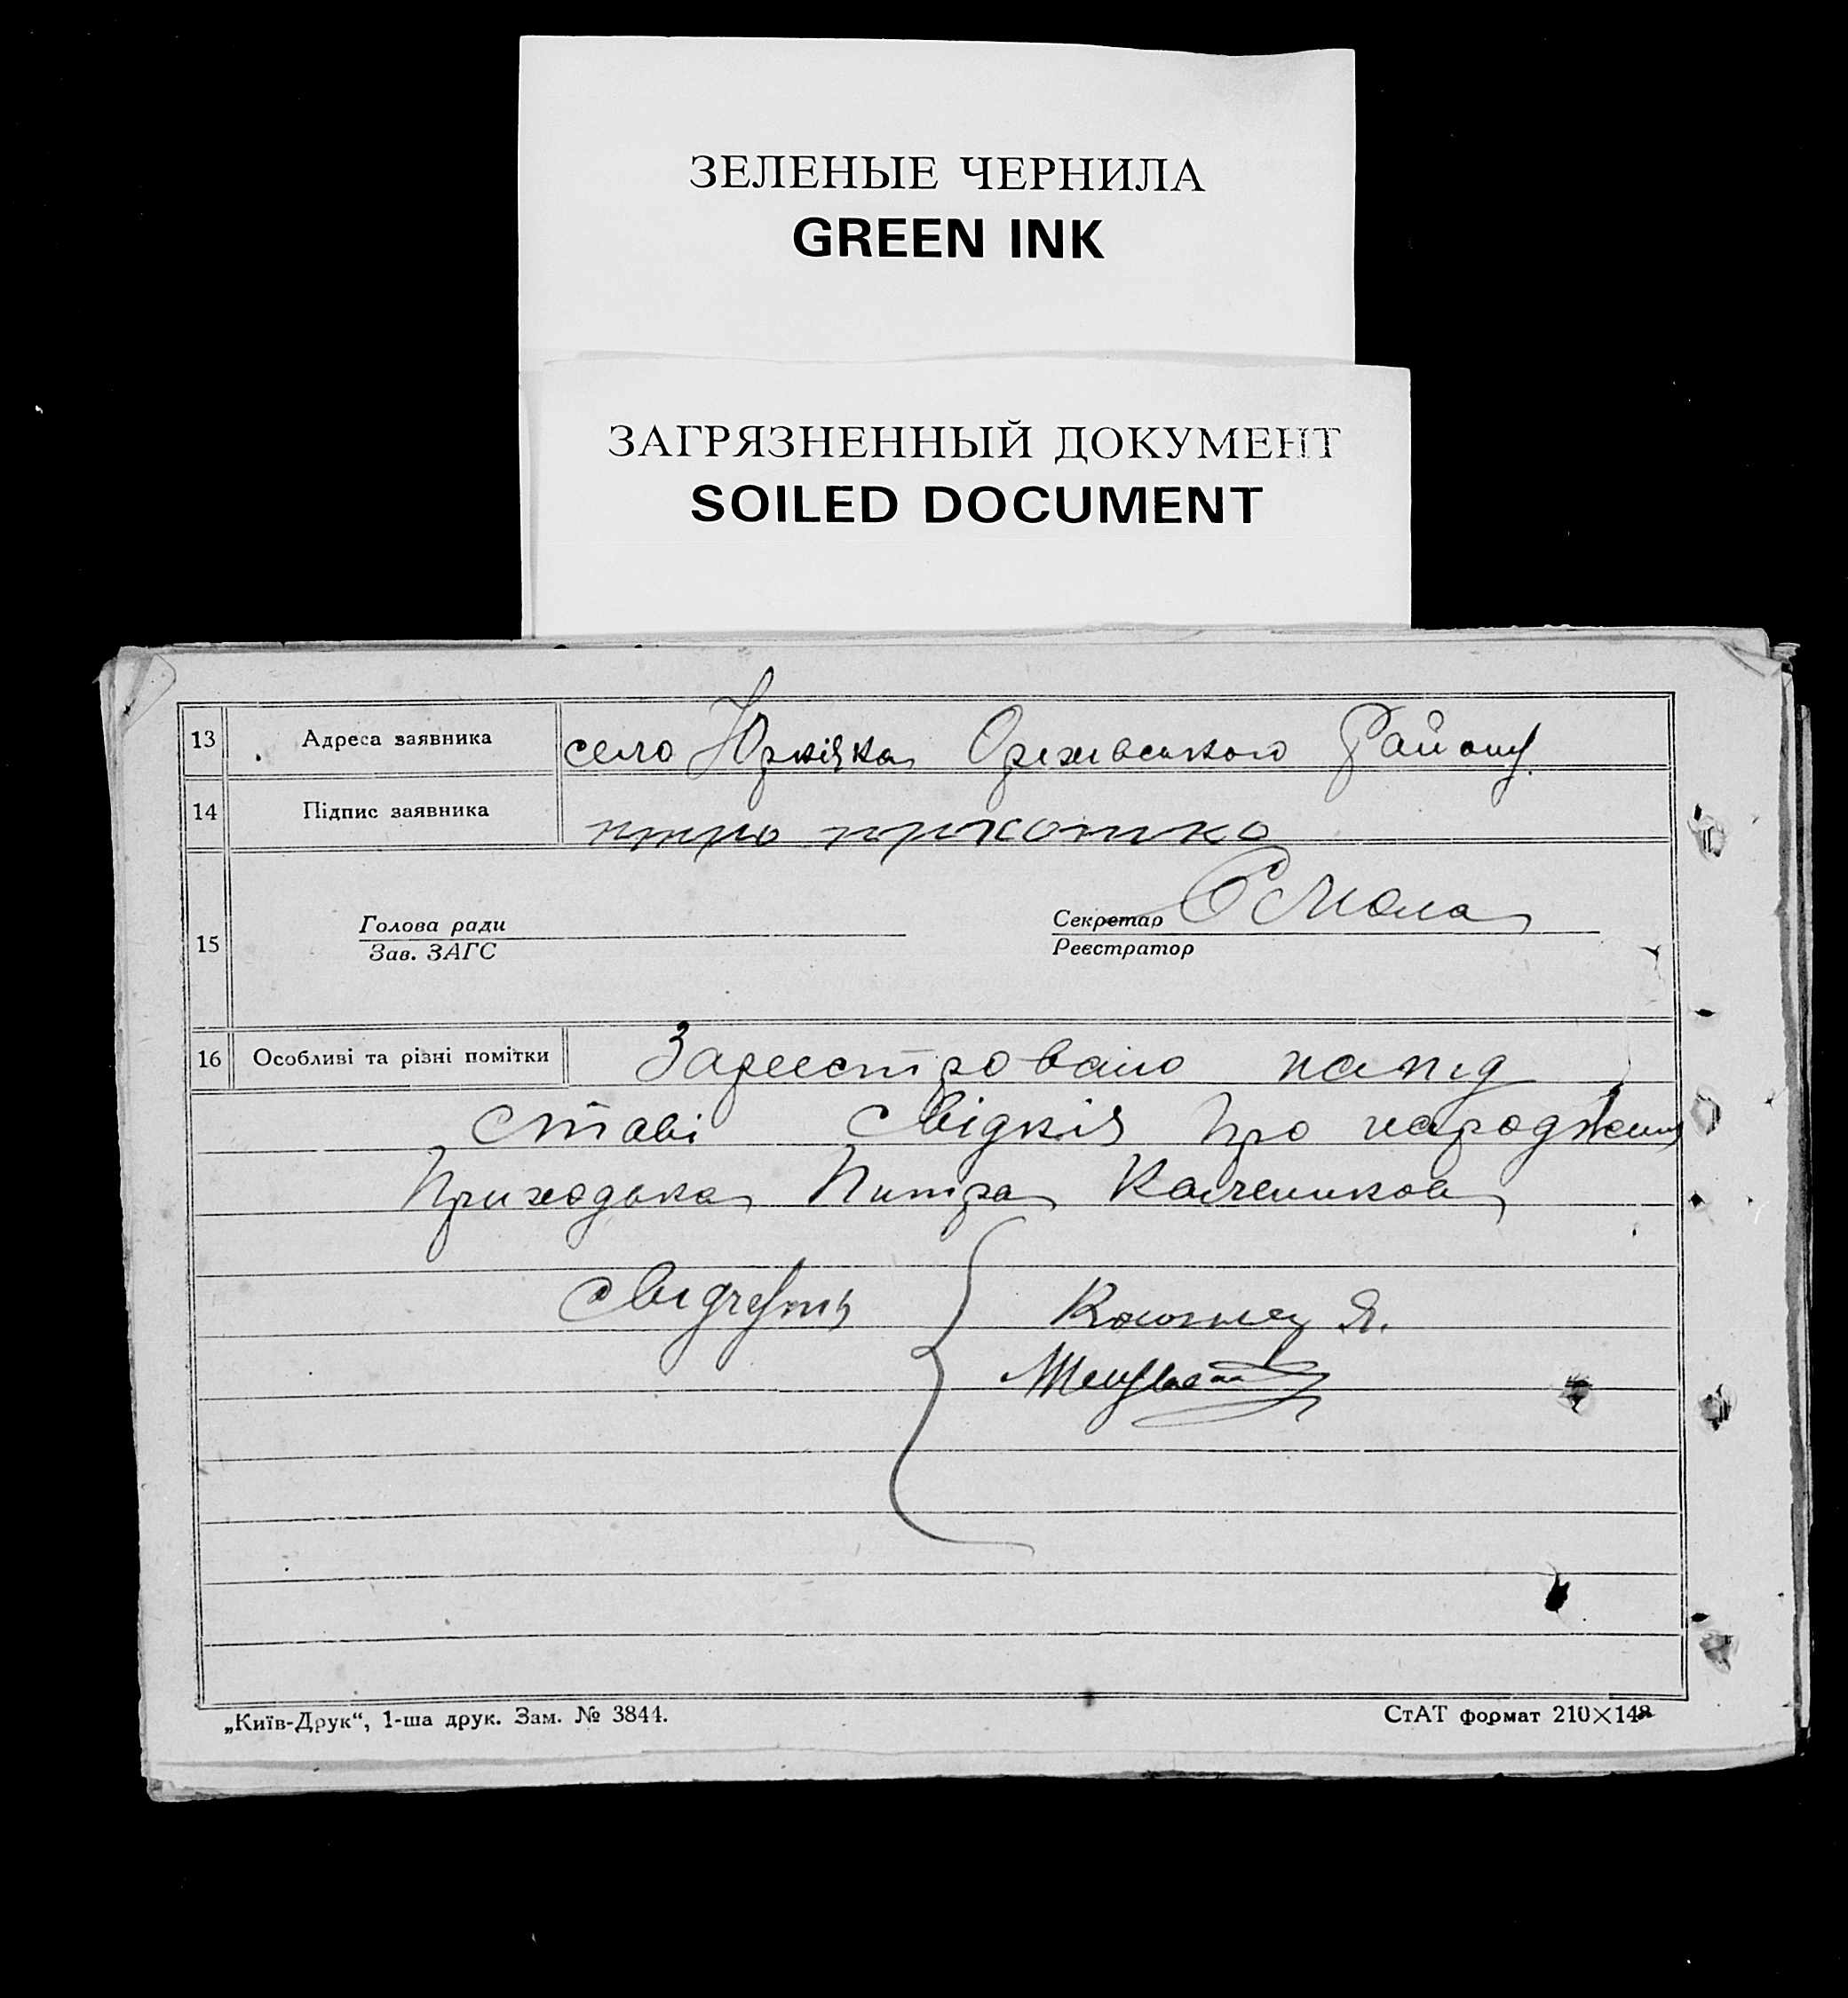 ЗЕЛЕНЫЕ ЧЕРНИЛА
GREEN INK
ЗАГРЯЗНЕННЫЙ ДОКУМЕНТ
SOILED DOCUMENT
13 Адреса заявника село Юрківка Оріхівського Району
14 Підпис заявника
Секретар
Голова ради
15
Зав. ЗАГС Реєстратор
16 Особливі та різні помітки Зареестровано напід
ставі свідків про народження
Приходька Питра
„Київ-Друк“, 1-ша друк. Зам. № 3844. СтАТ формат 210×148